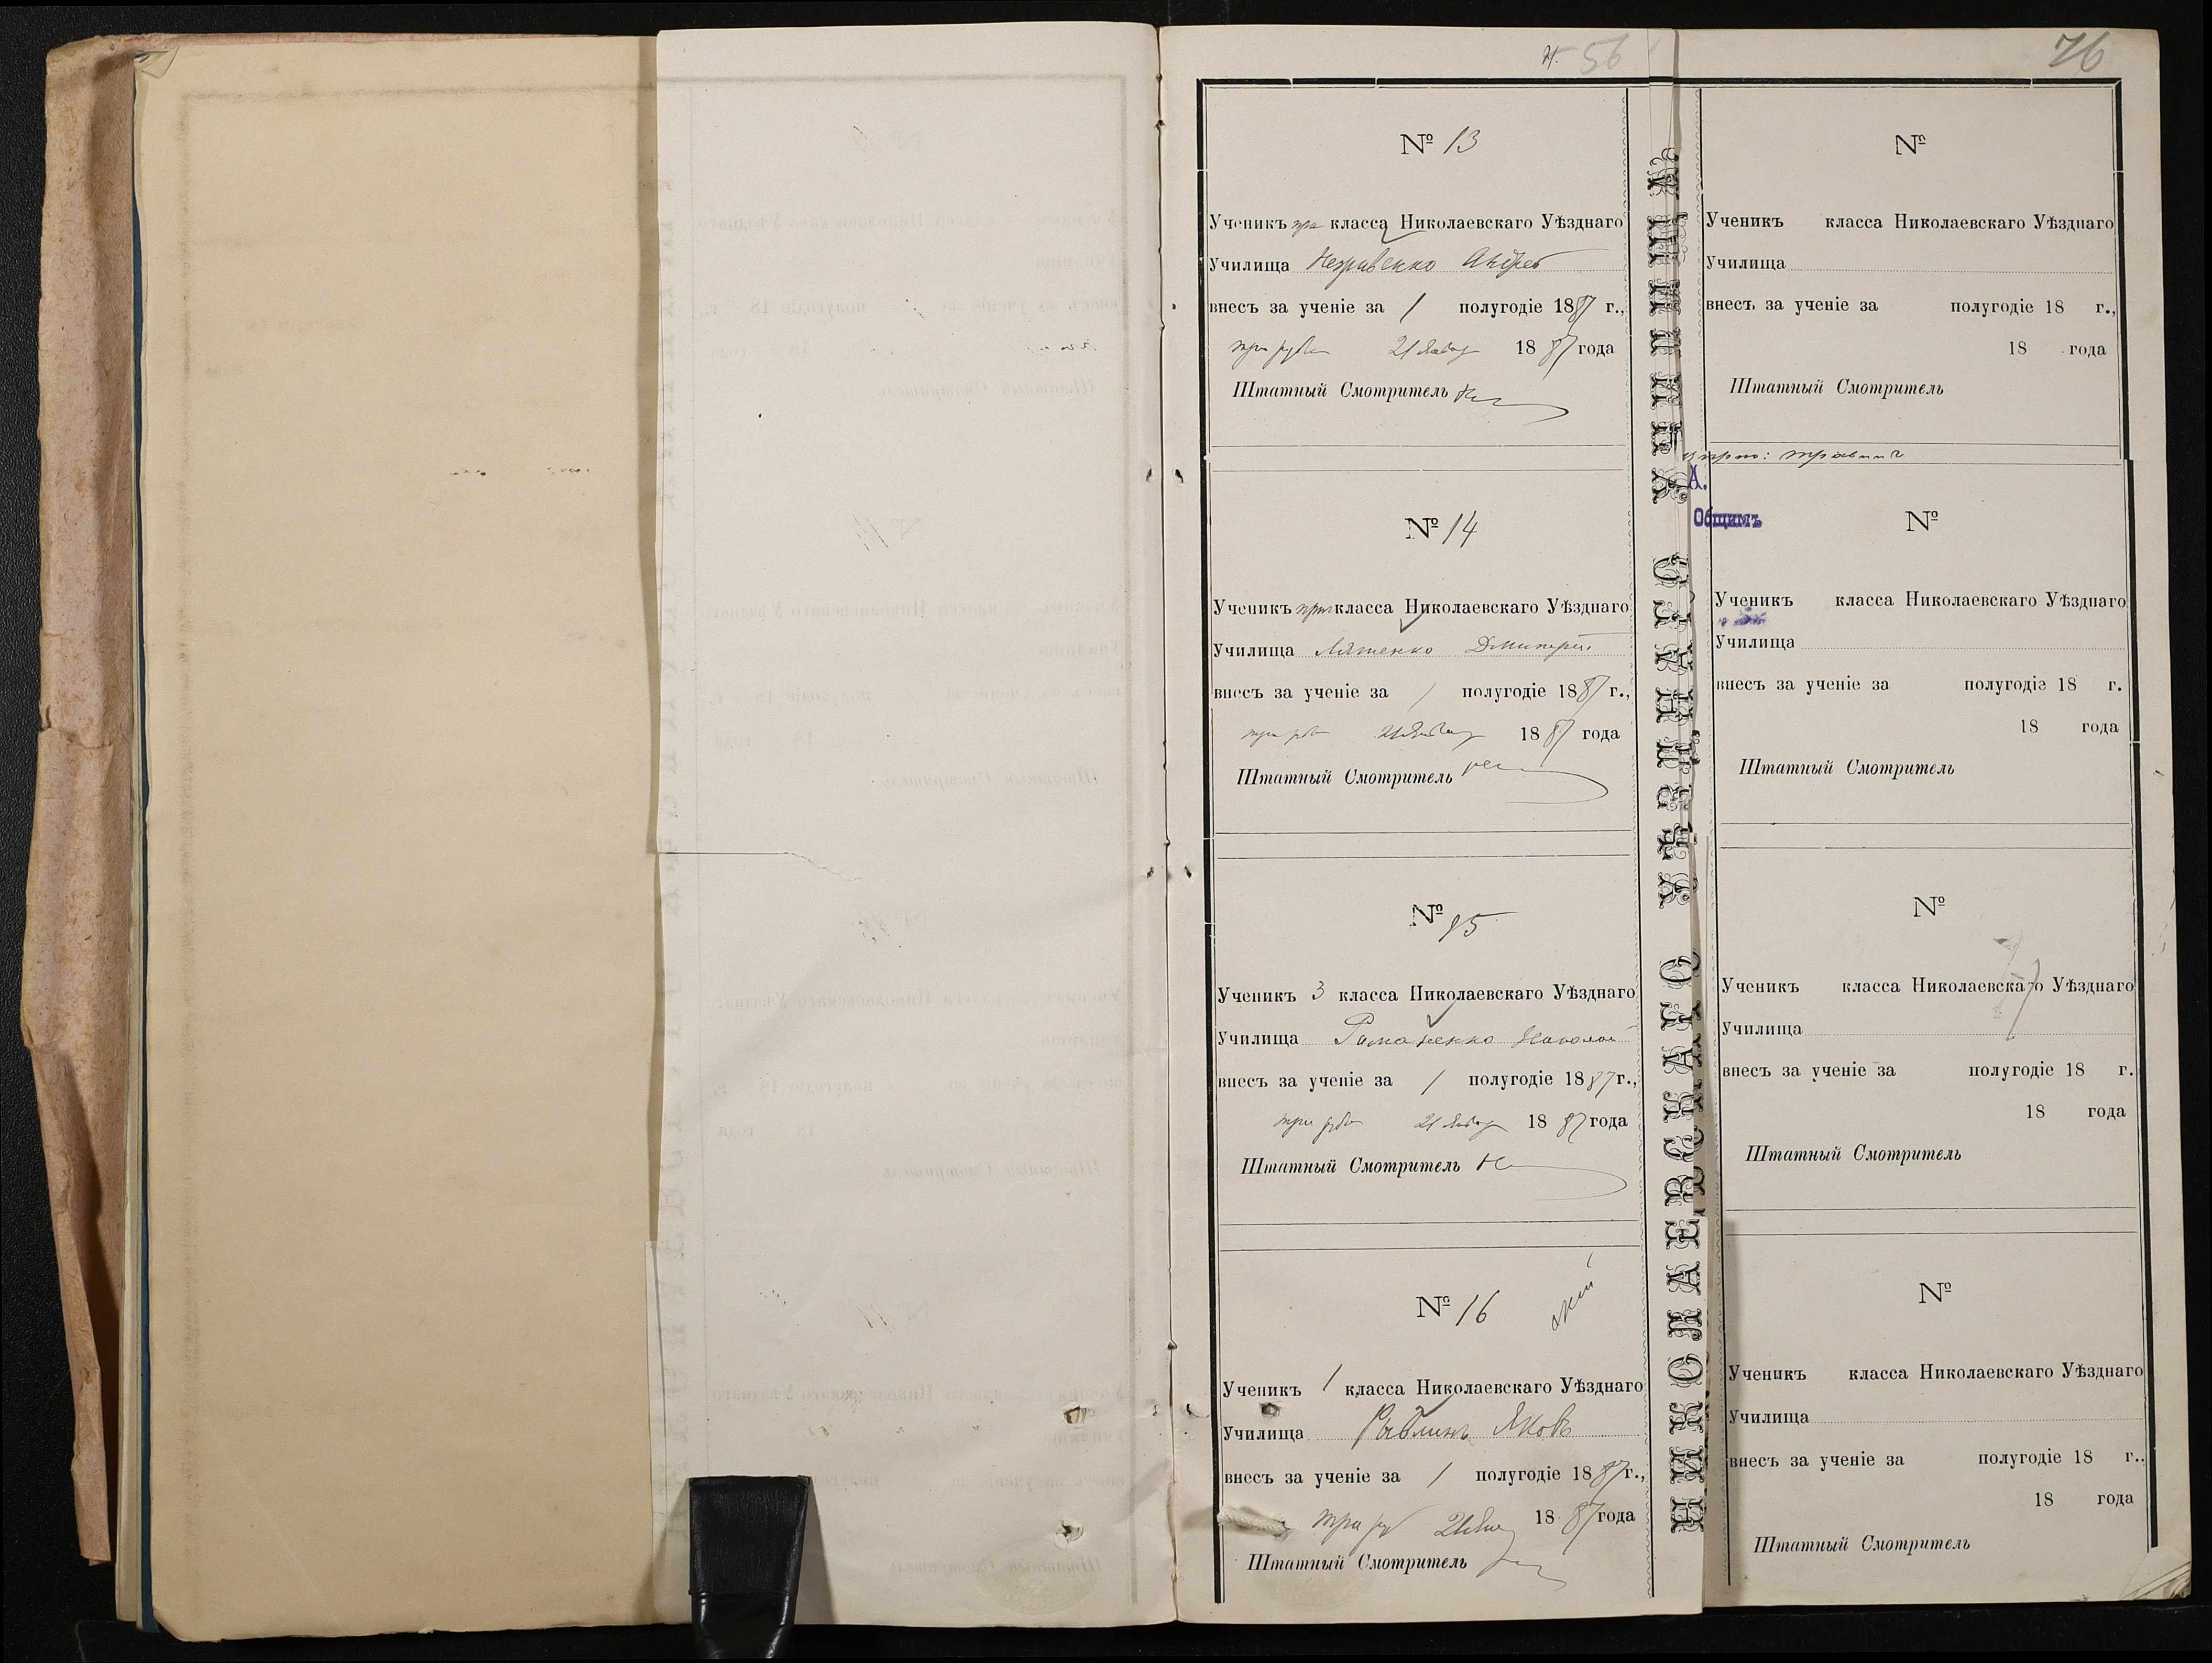 56
76
№ 13
Ученикъ при класса Николаевскаго Уѣзднаго
Училища Андрей
внесъ за ученіе за 1 полугодіе 1887 г.,
три рубл 21 Январ 1887 года
Штатный Смотритель
№ 14
Ученикъ приг класса Николаевскаго Уѣзднаго
Училища Ляшенко Дмитрій
внесъ за ученіе за 1 полугодіе 1887 г.,
три руб 21 Январ 1887 года
Штатный Смотритель
№ 15
Ученикъ 3 класса Николаевскаго Уѣзднаго
Училища Романенко Николай
внесъ за ученіе за 1 полугодіе 1887 г.,
три рубл 21 Январ 1887 года
Штатный Смотритель
№ 16
Ученикъ 1 класса Николаевскаго Уѣзднаго
Училища Рыблинъ Яковъ
внесъ за ученіе за 1 полугодіе 1887 г.,
три ру 21 Янв 1887 года
Штатный Смотритель
НИКОЛАЕВСКАГО УѢЗДНАГО УЧИЛИЩА
№
Ученикъ класса Николаевскаго Уѣзднаго
Училища
внесъ за ученіе за полугодіе 18 г.,
18 года
Штатный Смотритель
А.
Общимъ
№
Ученикъ класса Николаевскаго Уѣзднаго
Училища
внесъ за ученіе за полугодіе 18 г.
18 года
Штатный Смотритель
№
Ученикъ класса Николаевскаго Уѣзднаго
Училища
внесъ за ученіе за полугодіе 18 г.
18 года
Штатный Смотритель
№
Ученикъ класса Николаевскаго Уѣзднаго
Училища
внесъ за ученіе за полугодіе 18 г..
18 года
Штатный Смотритель